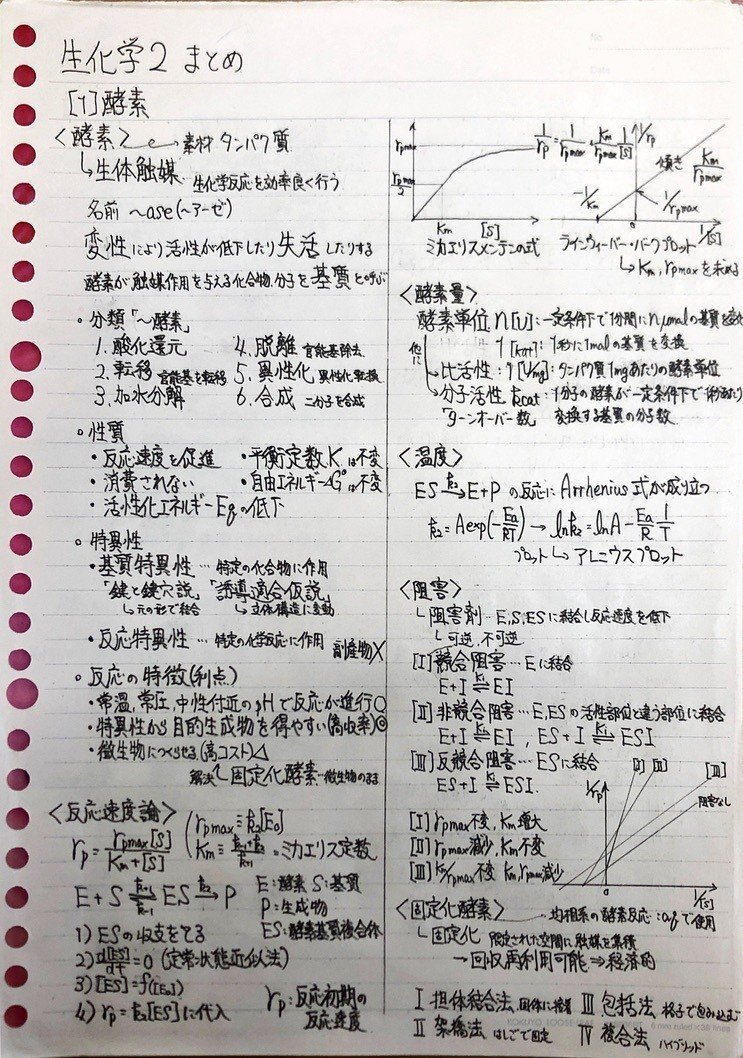 生化学2 まとめ
[1]酵素
<酵素> 素材 タンパク質
↳生体触媒 生化学反応を効率良く行う
名前 ~ase(~アーゼ)
変性により活性が低下したり失活したりする
酵素が触媒作用を与える化合物、分子を基質と呼ぶ
。分類「~酵素」
1. 酸化還元 4. 脱離 官能基除去
2. 転移 官能基を転移 5. 異性化 異性化転換
3. 加水分解 6. 合成 二分子を合成
。性質
・反応速度を促進 ・平衡定数Kは不変
・消費されない ・自由エネルギーG°は不変
・活性化エネルギーEaの低下
。特異性
・基質特異性 … 特定の化合物に作用
「鍵と鍵穴説」「誘導適合仮説」
↳元の形で結合 ↳立体構造に変動
・反応特異性 … 特定の化学反応に作用 副産物X
。反応の特徴(利点)
・常温、常圧、中性付近のpHで反応が進行○
・特異性から目的生成物を得やすい(高収率)◎
・微生物につくらせる(高コスト)△
解決 固定化酵素…微生物のまま
<反応速度論>
rp = rpmax[S] / Km+[S] (rpmax ≡ k2[E0]
Km ≡ k-1+k2 / k+1 …ミカエリス定数
E + S ⇌ ES → P k+1 k-1 k2
E:酵素 S:基質
P:生成物
ES:酵素基質複合体
1) ESの収支をてる
2) d[ES]/dt = 0 (定常状態近似法)
3) [ES] = f([E0])
4) rp = k2[ES]に代入
rp:反応初期の
反応速度
rpmax
rpmax/2
Km [S]
ミカエリスメンテンの式
1/rp = 1/rpmax + Km/rpmax 1/[S]
1/rp
傾き Km/rpmax
-1/Km
1/rpmax
0
1/[S]
ラインウィーバー・バークプロット
↳ Km, rpmaxを求める
<酵素量>
酵素単位 n[U]:一定条件下で1分間にn μmolの基質を変化
他に 1[kat]:1秒に1molの基質を変換
→比活性:1[U/mg]:タンパク質1mgあたりの酵素単位
→分子活性 kcat:1分子の酵素が一定条件下で1秒あたり
「ターンオーバー数」 変換する基質の分子数
<温度>
ES →k2 E+P の反応に Arrhenius 式が成り立つ
k2 = A exp(-Ea/RT) → ln k2 = ln A - Ea/R 1/T
プロット↳アレニウスプロット
<阻害>
阻害剤…E,S,ESに結合し反応速度を低下
↳可逆、不可逆
[I]競合阻害…Eに結合
E+I ⇌ EI
[II]非競合阻害…E,ESの活性部位と違う部位に結合
E+I ⇌ EI , ES+I ⇌ ESI
[III]反競合阻害…ESに結合
ES+I ⇌ ESI
[I] rpmax不変、Km増大
[II] rpmax減少、Km不変
[III] Km/rpmax不変 Km,rpmax減少
1/rp
[I] [II] [III]
阻害なし
0
1/[S]
<固定化酵素> 均相系の酵素反応:aqで使用
固定化 限定された空間に触媒を集積
→回収再利用可能⇒経済的
I 担体結合法 固体に接着 III 包括法 格子で包み込む
II 架橋法 はしごで固定 IV 複合法 ハイブリッド